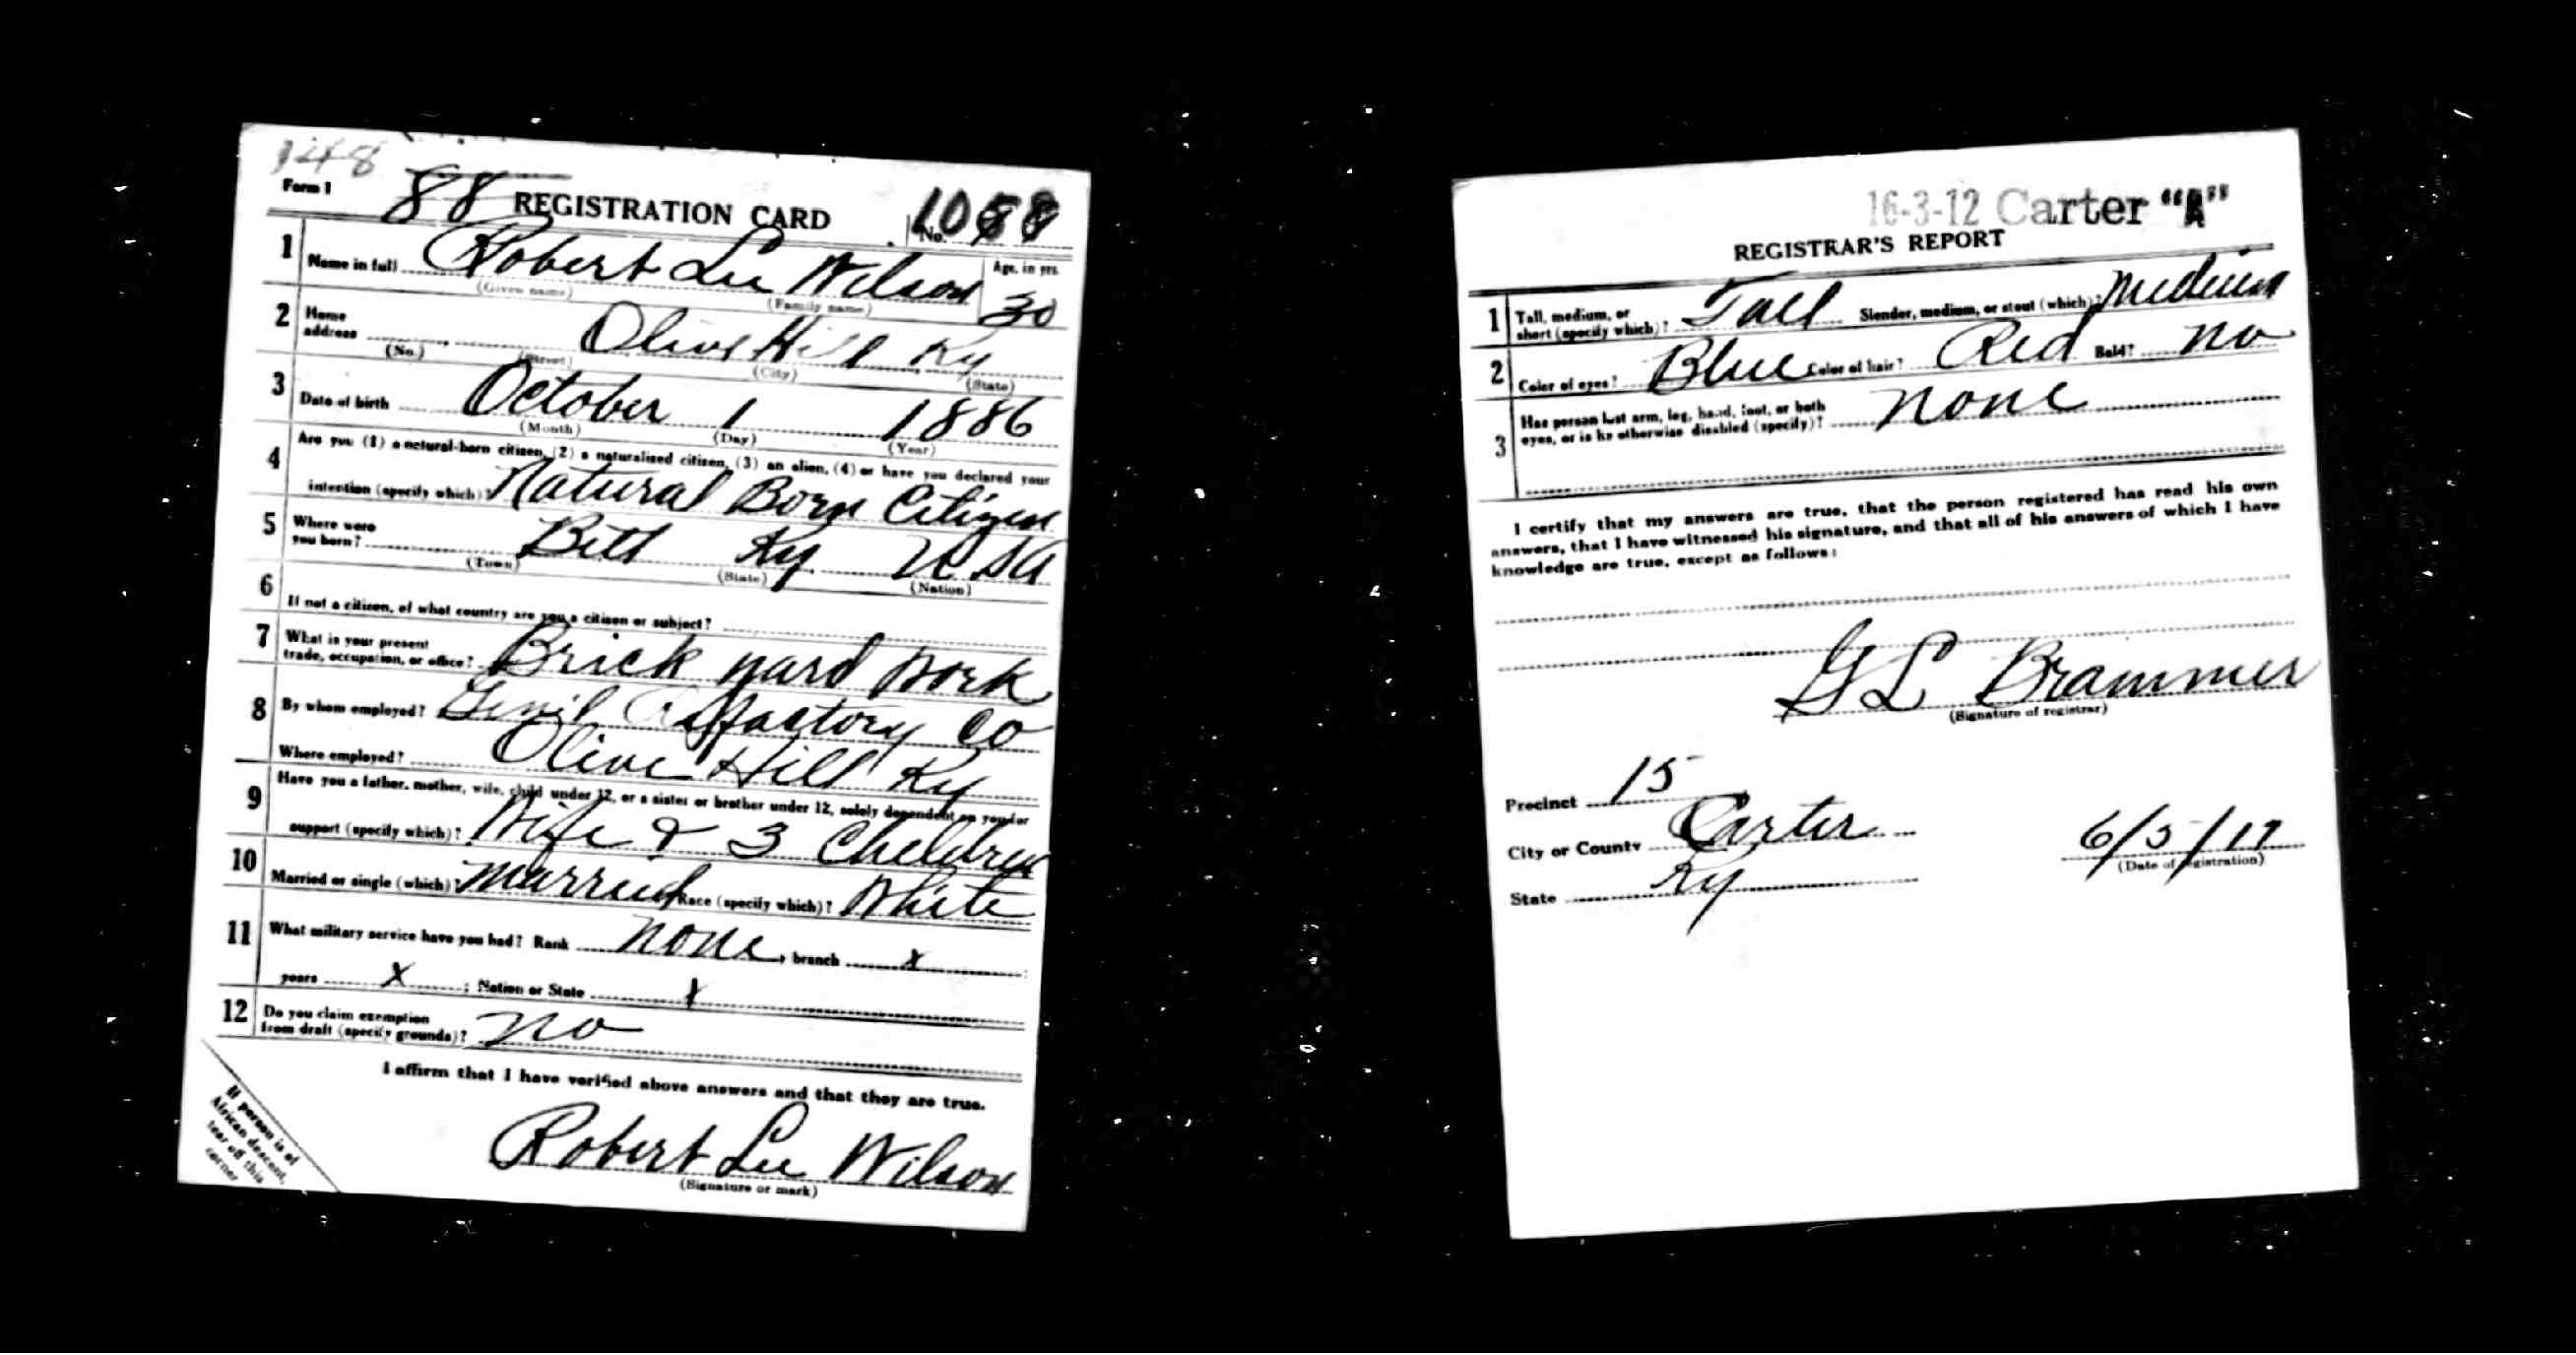 148
Form 1 88 REGISTRATION CARD No. 1088
1 Name in full Robert Lee Wilson Age, in yrs. 30
(Given name) (Family name)
2 Home address Olive Hill Ky
(No.) (Street) (City) (State)
3 Date of birth October 1 1886
(Month) (Day) (Year)
4 Are you (1) a natural-born citizen, (2) a naturalized citizen, (3) an alien, (4) or have you declared your
intention (specify which)? Natural Born Citizen
5 Where were you born? Ky USA
(Town) (State) (Nation)
6 If not a citizen, of what country are you a citizen or subject?
7 What is your present trade, occupation, or office? Brick yard Work
8 By whom employed? Refractory Co
Where employed? Olive Hill Ky
9 Have you a father, mother, wife, child under 12, or a sister or brother under 12, solely dependent on you for
support (specify which)? Wife & 3 Children
10 Married or single (which)? Married Race (specify which)? White
11 What military service have you had? Rank None, branch x;
years x; Nation or State x
12 Do you claim exemption from draft (specify grounds)? no
I affirm that I have verified above answers and that they are true.
Robert Lee Wilson
(Signature or mark)
If person is of
African descent,
tear off this
corner
16-3-12 Carter "A"
REGISTRAR'S REPORT
1 Tall, medium, or short (specify which)? Tall Slender, medium, or stout (which)? Medium
2 Color of eyes? Blue Color of hair? Red Bald? no
3 Has person lost arm, leg, hand, foot, or both eyes, or is he otherwise disabled (specify)? none
I certify that my answers are true, that the person registered has read his own
answers, that I have witnessed his signature, and that all of his answers of which I have
knowledge are true, except as follows:
G L Brammer
(Signature of registrar)
Precinct 15
City or County Carter 6/5/17
State Ky (Date of registration)